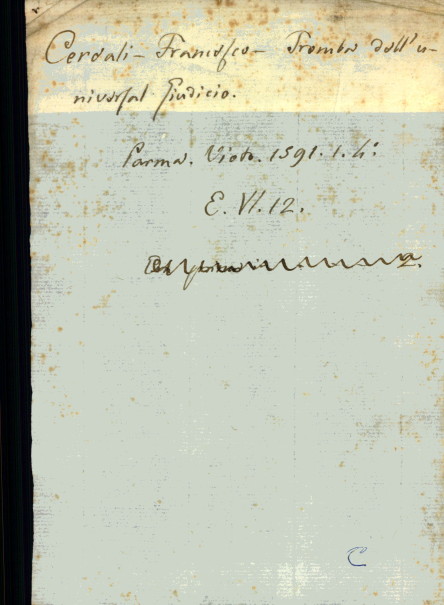 Cerdali - Francesco - Tromba dell' u-
niversal Giudicio.
Parma. Vioto. 1591. 1. 4:
E. VI. 12.
C